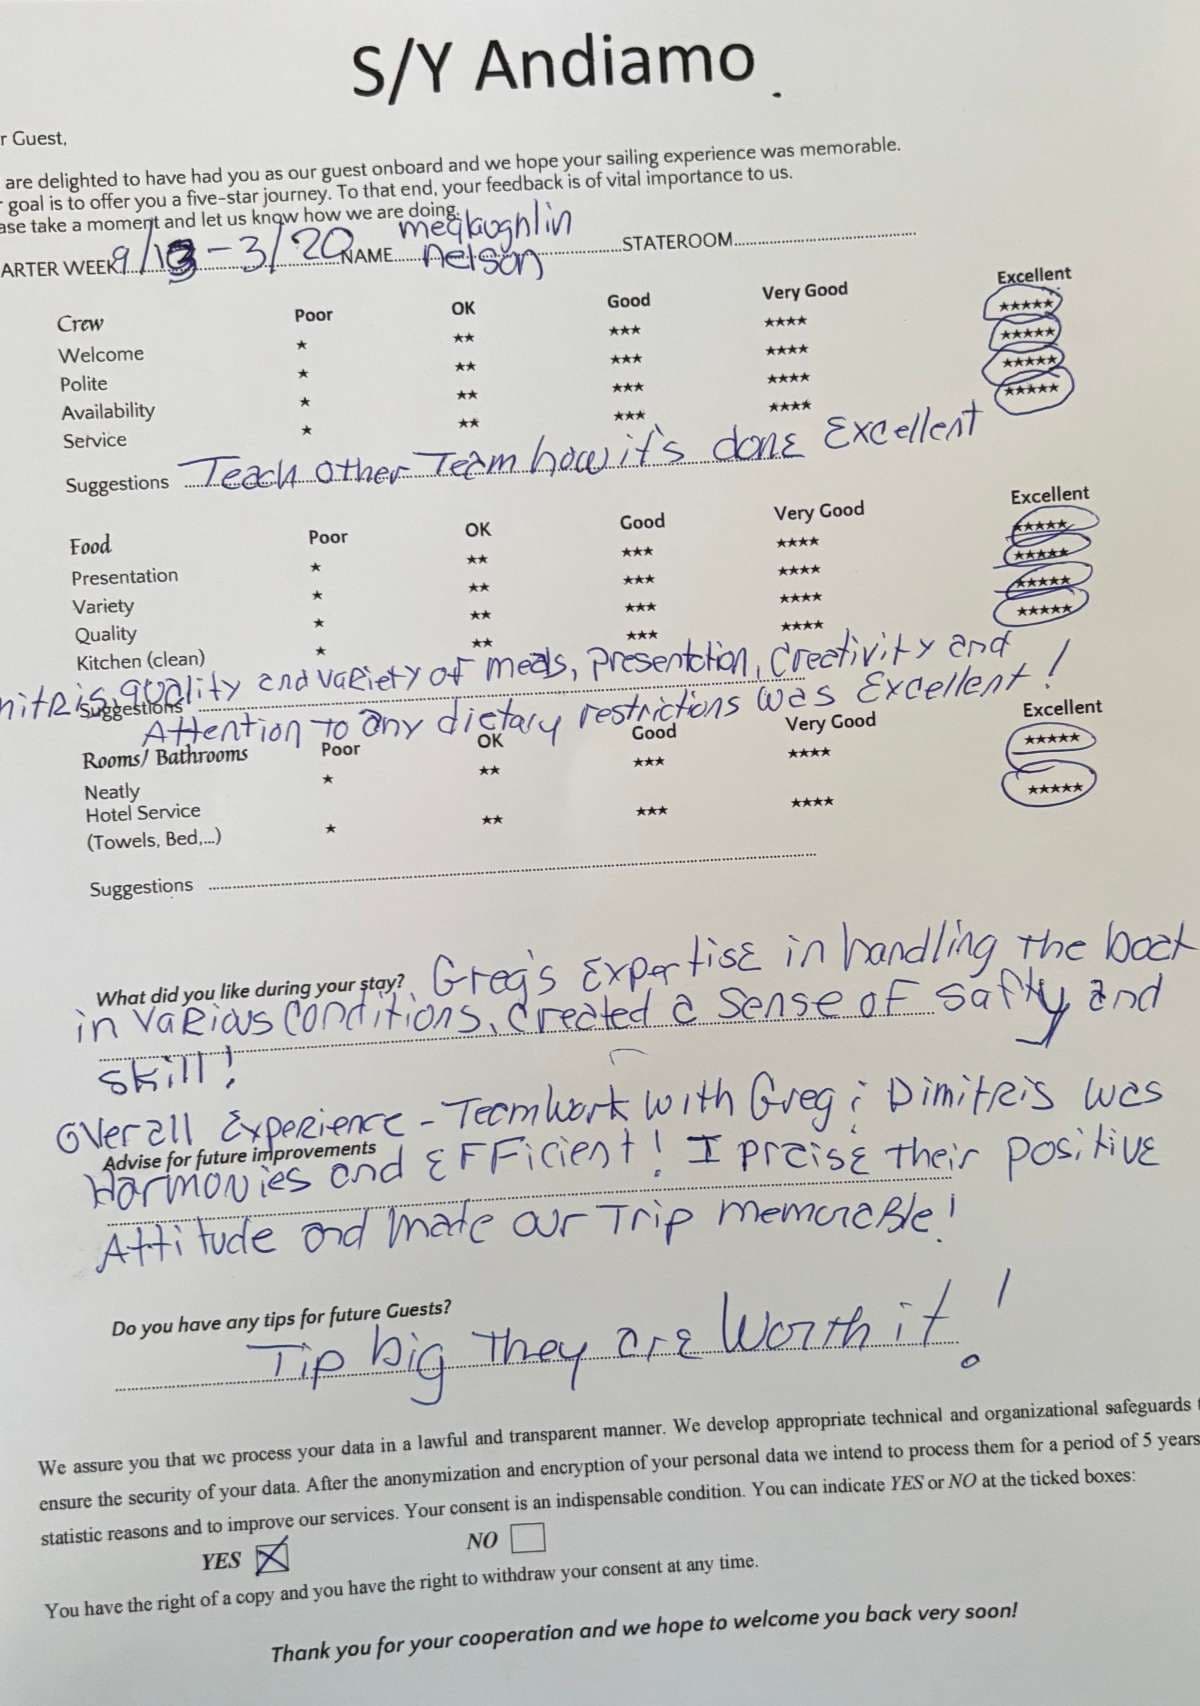 S/Y Andiamo
r Guest,
are delighted to have had you as our guest onboard and we hope your sailing experience was memorable.
goal is to offer you a five-star journey. To that end, your feedback is of vital importance to us.
ase take a moment and let us know how we are doing.
ARTER WEEK 9/13-3/20 NAME meglaughlin nelson STATEROOM
Crew Poor OK Good Very Good Excellent
Welcome ★ ★★ ★★★ ★★★★ ★★★★★
Polite ★ ★★ ★★★ ★★★★ ★★★★★
Availability ★ ★★ ★★★ ★★★★ ★★★★★
Service ★ ★★ ★★★ ★★★★ ★★★★★
Suggestions Teach other Team how it's done Excellent
Food Poor OK Good Very Good Excellent
Presentation ★ ★★ ★★★ ★★★★ ★★★★★
Variety ★ ★★ ★★★ ★★★★ ★★★★★
Quality ★ ★★ ★★★ ★★★★ ★★★★★
Kitchen (clean) ★ ★★ ★★★ ★★★★ ★★★★★
mitris, quality and variety of meals, presentation, creativity and
Suggestions
Attention to any dietary restrictions was Excellent!
Rooms/ Bathrooms Poor OK Good Very Good Excellent
Neatly ★ ★★ ★★★ ★★★★ ★★★★★
Hotel Service
(Towels, Bed,...) ★ ★★ ★★★ ★★★★ ★★★★★
Suggestions
What did you like during your stay? Greg's Expertise in handling the boat
in various conditions, created a sense of safty and
skill!
Overall Experience - Teamwork with Greg & Dimitris was
Advise for future improvements
Harmonies and Efficient! I praise their positive
Attitude and made our Trip memorable!
Do you have any tips for future Guests?
Tip big they are worth it!
We assure you that we process your data in a lawful and transparent manner. We develop appropriate technical and organizational safeguards t
ensure the security of your data. After the anonymization and encryption of your personal data we intend to process them for a period of 5 years
statistic reasons and to improve our services. Your consent is an indispensable condition. You can indicate YES or NO at the ticked boxes:
YES NO
You have the right of a copy and you have the right to withdraw your consent at any time.
Thank you for your cooperation and we hope to welcome you back very soon!